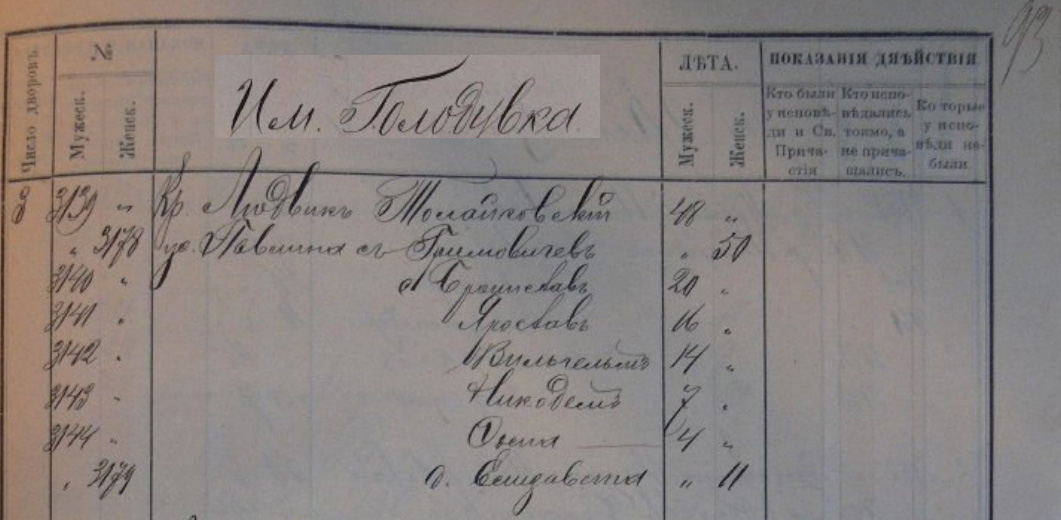 93
Число дворовъ.
№
Мужеск.
Женск.
Им. Голодувка
ЛѢТА.
Мужеск.
Женск.
ПОКАЗАНІЯ ДѢЙСТВІЯ
Кто были у исповѣди и Св. Причастія
Кто исповѣдались токмо, а не причащались.
Которые у исповѣди не были.
8 3139 „ Кр. Людвикъ 48 „
„ 3178 съ „ 50
3140 „ Брониславъ 20 „
3141 „ Ярославъ 16 „
3142 „ Вильгельмъ 14 „
3143 „ Никодемъ 7 „
3144 „ 4 „
„ 3179 д. Елизавета „ 11